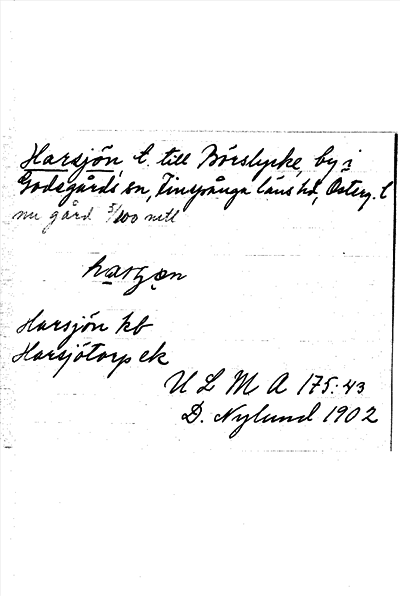 Harsjön, t. till Börslycke, by i
Godegårds sn, Finspånga läns hd, Österg. l
nu gård 3/100 mtl
Harsjön kb
Harsjötorp ek
U L M A 175:43
D. Nylund 1902